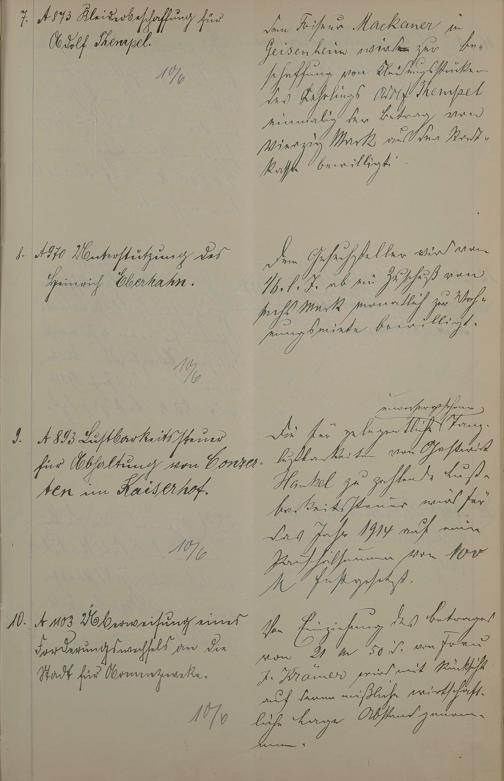 7. A 873 Kleiderbeschaffung für
Adolf Thempel.
10/6
Dem Friseur Mackaner in
Geisenheim wird zur Be-
schaffung von Kleidungsstücken
des Lehrlings Adolf Thempel
einmalig der Betrag von
Vierzig Mark aus der Stadt-
kasse bewilligt.
8. A 970 Unterstützung des
Heinrich Eberhahn.
10/6
Dem Gesuchsteller wird vom
1/6. l. J. ab ein Zuschuß von
sechs Mark monatlich zur Woh-
nungsmiete bewilligt.
9. A 893 Lustbarkeitssteuer
für Abhaltung von Conzer-
ten im Kaiserhof.
10/6
Die für gelegentliche Tanz-
lustbarkeit von Gastwirt
Henkel zu zahlende Lust-
barkeitssteuer wird für
das Jahr 1914 auf eine
Pauschalsumme von 100
M festgesetzt.
10. A 1103 Überweisung eines
Forderungswechsels an die
Stadt für Armenzwecke.
10/6
Von Einziehung des Betrages
von 21 M 50 d. von Frau
Krämer wird mit Rücksicht
auf deren mißliche wirtschaft-
liche Lage Abstand genom-
men.